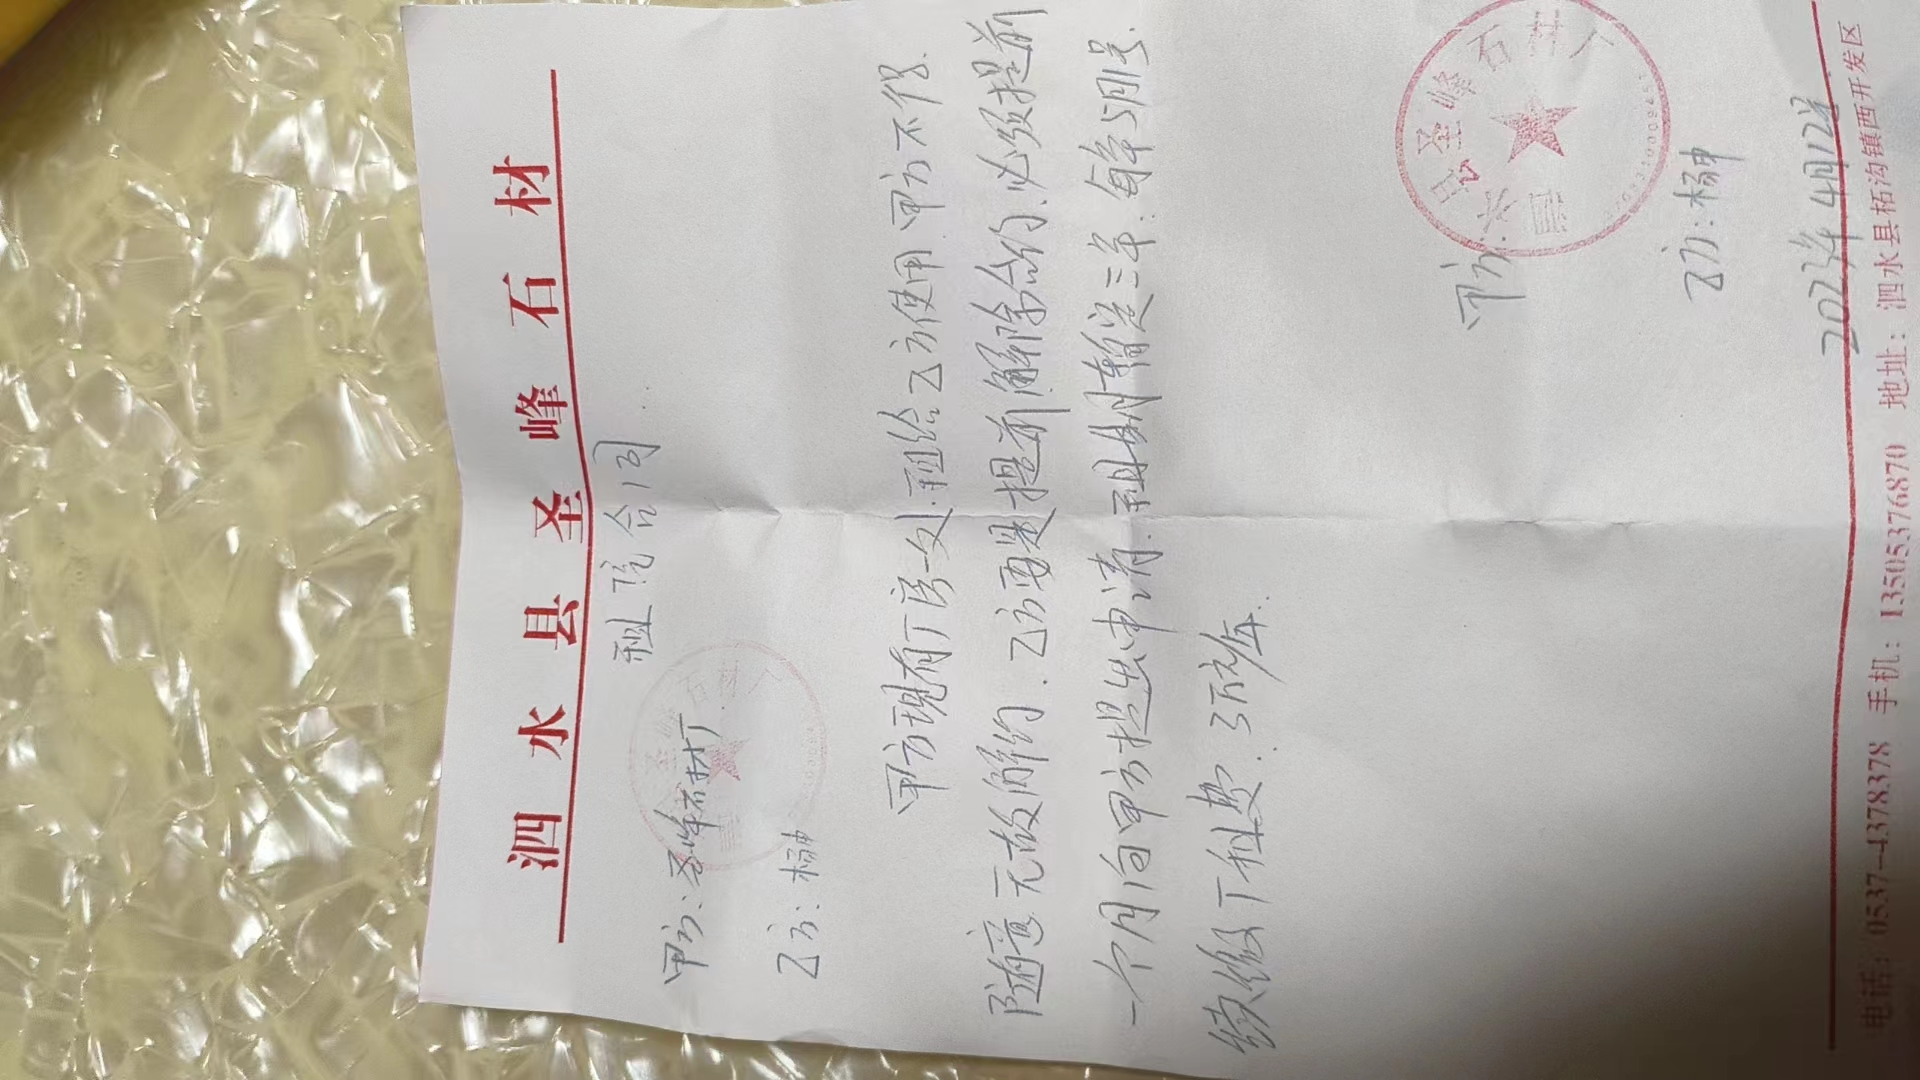 泗水县圣峰石材
租院合同
甲方：圣峰石材厂
乙方：杨冲
甲方现有厂房一处.租给乙方使用.甲方不得.
随意无故解约.乙方要是提前解除合约.必须提前
一个月向甲方提出申请.租期暂定三年：每年5月1号.
续缴下租费.3万元/年.
甲方：
泗水县圣峰石材厂
乙方：杨冲
2023年4月12号
电话：0537-4378378 手机：13505376870 地址：泗水县柘沟镇西开发区